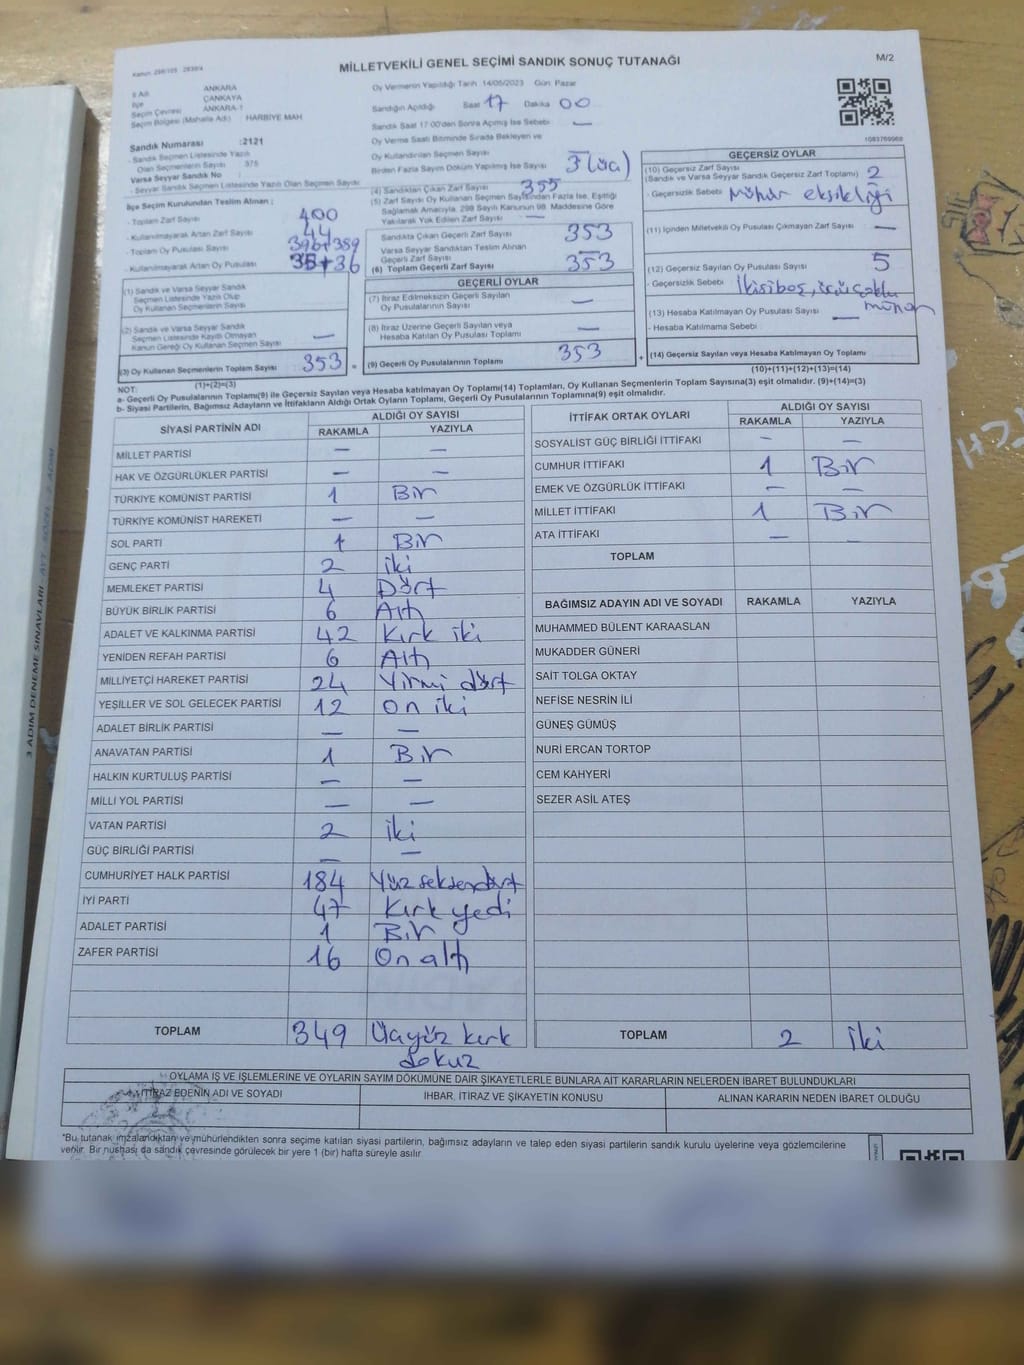 MİLLETVEKİLİ GENEL SEÇİMİ SANDIK SONUÇ TUTANAĞI
M/2
İl Adı ANKARA
İlçe ÇANKAYA
Seçim Çevresi ANKARA-1
Seçim Bölgesi (Mahalle Adı) HARBİYE MAH
Sandık Numarası :2121
- Sandık Seçmen Listesinde Yazılı
Olan Seçmenlerin Sayısı 375
Varsa Seyyar Sandık No
- Seyyar Sandık Seçmen Listesinde Yazılı Olan Seçmen Sayısı:
İlçe Seçim Kurulundan Teslim Alınan ;
- Toplam Zarf Sayısı 400
- Kullanılmayarak Artan Zarf Sayısı 44
- Toplam Oy Pusulası Sayısı
- Kullanılmayarak Artan Oy Pusulası
(1) Sandık ve Varsa Seyyar Sandık
Seçmen Listesinde Yazılı Olup
Oy Kullanan Seçmenlerin Sayısı
(2) Sandık ve Varsa Seyyar Sandık
Seçmen Listesinde Kayıtlı Olmayan
Kanun Gereği Oy Kullanan Seçmen Sayısı —
(3) Oy Kullanan Seçmenlerin Toplam Sayısı 353
(1)+(2)=(3)
Oy Vermenin Yapıldığı Tarih 14/05/2023 Gün Pazar
Sandığın Açıldığı Saat 17 Dakika 00
Sandık Saat 17:00'den Sonra Açılmış İse Sebebi —
Oy Verme Saati Bitiminde Sırada Bekleyen ve
Oy Kullandırılan Seçmen Sayısı
Birden Fazla Sayım Döküm Yapılmış İse Sayısı 3 (üç)
(4) Sandıktan Çıkan Zarf Sayısı 355
(5) Zarf Sayısı Oy Kullanan Seçmen Sayısından Fazla İse, Eşitliği
Sağlamak Amacıyla, 298 Sayılı Kanunun 98. Maddesine Göre
Yakılarak Yok Edilen Zarf Sayısı —
Sandıkta Çıkan Geçerli Zarf Sayısı 353
Varsa Seyyar Sandıktan Teslim Alınan
Geçerli Zarf Sayısı
(6) Toplam Geçerli Zarf Sayısı 353
GEÇERLİ OYLAR
(7) İtiraz Edilmeksizin Geçerli Sayılan
Oy Pusulalarının Sayısı —
(8) İtiraz Üzerine Geçerli Sayılan veya
Hesaba Katılan Oy Pusulası Toplamı —
= (9) Geçerli Oy Pusulalarının Toplamı 353
GEÇERSİZ OYLAR
(10) Geçersiz Zarf Sayısı
(Sandık ve Varsa Seyyar Sandık Geçersiz Zarf Toplamı) 2
- Geçersizlik Sebebi Mühür eksikliği
(11) İçinden Milletvekili Oy Pusulası Çıkmayan Zarf Sayısı —
(12) Geçersiz Sayılan Oy Pusulası Sayısı 5
- Geçersizlik Sebebi İkisi boş, üçü çoklu mühür
(13) Hesaba Katılmayan Oy Pusulası Sayısı —
- Hesaba Katılmama Sebebi
+ (14) Geçersiz Sayılan veya Hesaba Katılmayan Oy Toplamı
(10)+(11)+(12)+(13)=(14)
NOT:
a- Geçerli Oy Pusulalarının Toplamı(9) ile Geçersiz Sayılan veya Hesaba katılmayan Oy Toplamı(14) Toplamları, Oy Kullanan Seçmenlerin Toplam Sayısına(3) eşit olmalıdır. (9)+(14)=(3)
b- Siyasi Partilerin, Bağımsız Adayların ve İttifakların Aldığı Ortak Oyların Toplamı, Geçerli Oy Pusulalarının Toplamına(9) eşit olmalıdır.
SİYASİ PARTİNİN ADI ALDIĞI OY SAYISI
RAKAMLA YAZIYLA
MİLLET PARTİSİ — —
HAK VE ÖZGÜRLÜKLER PARTİSİ — —
TÜRKİYE KOMÜNİST PARTİSİ 1 Bir
TÜRKİYE KOMÜNİST HAREKETİ — —
SOL PARTİ 1 Bir
GENÇ PARTİ 2 iki
MEMLEKET PARTİSİ 4 Dört
BÜYÜK BİRLİK PARTİSİ 6 Altı
ADALET VE KALKINMA PARTİSİ 42 Kırk iki
YENİDEN REFAH PARTİSİ 6 Altı
MİLLİYETÇİ HAREKET PARTİSİ 24 Yirmi dört
YEŞİLLER VE SOL GELECEK PARTİSİ 12 On iki
ADALET BİRLİK PARTİSİ — —
ANAVATAN PARTİSİ 1 Bir
HALKIN KURTULUŞ PARTİSİ — —
MİLLİ YOL PARTİSİ — —
VATAN PARTİSİ 2 iki
GÜÇ BİRLİĞİ PARTİSİ — —
CUMHURİYET HALK PARTİSİ 184 Yüz seksendört
İYİ PARTİ 47 Kırk yedi
ADALET PARTİSİ 1 Bir
ZAFER PARTİSİ 16 On altı
TOPLAM 349 Üçyüz kırk dokuz
İTTİFAK ORTAK OYLARI ALDIĞI OY SAYISI
RAKAMLA YAZIYLA
SOSYALİST GÜÇ BİRLİĞİ İTTİFAKI — —
CUMHUR İTTİFAKI 1 Bir
EMEK VE ÖZGÜRLÜK İTTİFAKI — —
MİLLET İTTİFAKI 1 Bir
ATA İTTİFAKI — —
TOPLAM
BAĞIMSIZ ADAYIN ADI VE SOYADI RAKAMLA YAZIYLA
MUHAMMED BÜLENT KARAASLAN
MUKADDER GÜNERİ
SAİT TOLGA OKTAY
NEFİSE NESRİN İLİ
GÜNEŞ GÜMÜŞ
NURİ ERCAN TORTOP
CEM KAHYERİ
SEZER ASİL ATEŞ
TOPLAM 2 İki
OYLAMA İŞ VE İŞLEMLERİNE VE OYLARIN SAYIM DÖKÜMÜNE DAİR ŞİKAYETLERLE BUNLARA AİT KARARLARIN NELERDEN İBARET BULUNDUKLARI
İTİRAZ EDENİN ADI VE SOYADI İHBAR, İTİRAZ VE ŞİKAYETİN KONUSU ALINAN KARARIN NEDEN İBARET OLDUĞU
*Bu tutanak imzalandıktan ve mühürlendikten sonra seçime katılan siyasi partilerin, bağımsız adayların ve talep eden siyasi partilerin sandık kurulu üyelerine veya gözlemcilerine
verilir. Bir nüshası da sandık çevresinde görülecek bir yere 1 (bir) hafta süreyle asılır.
3 ADIM DENEME SINAVLARI